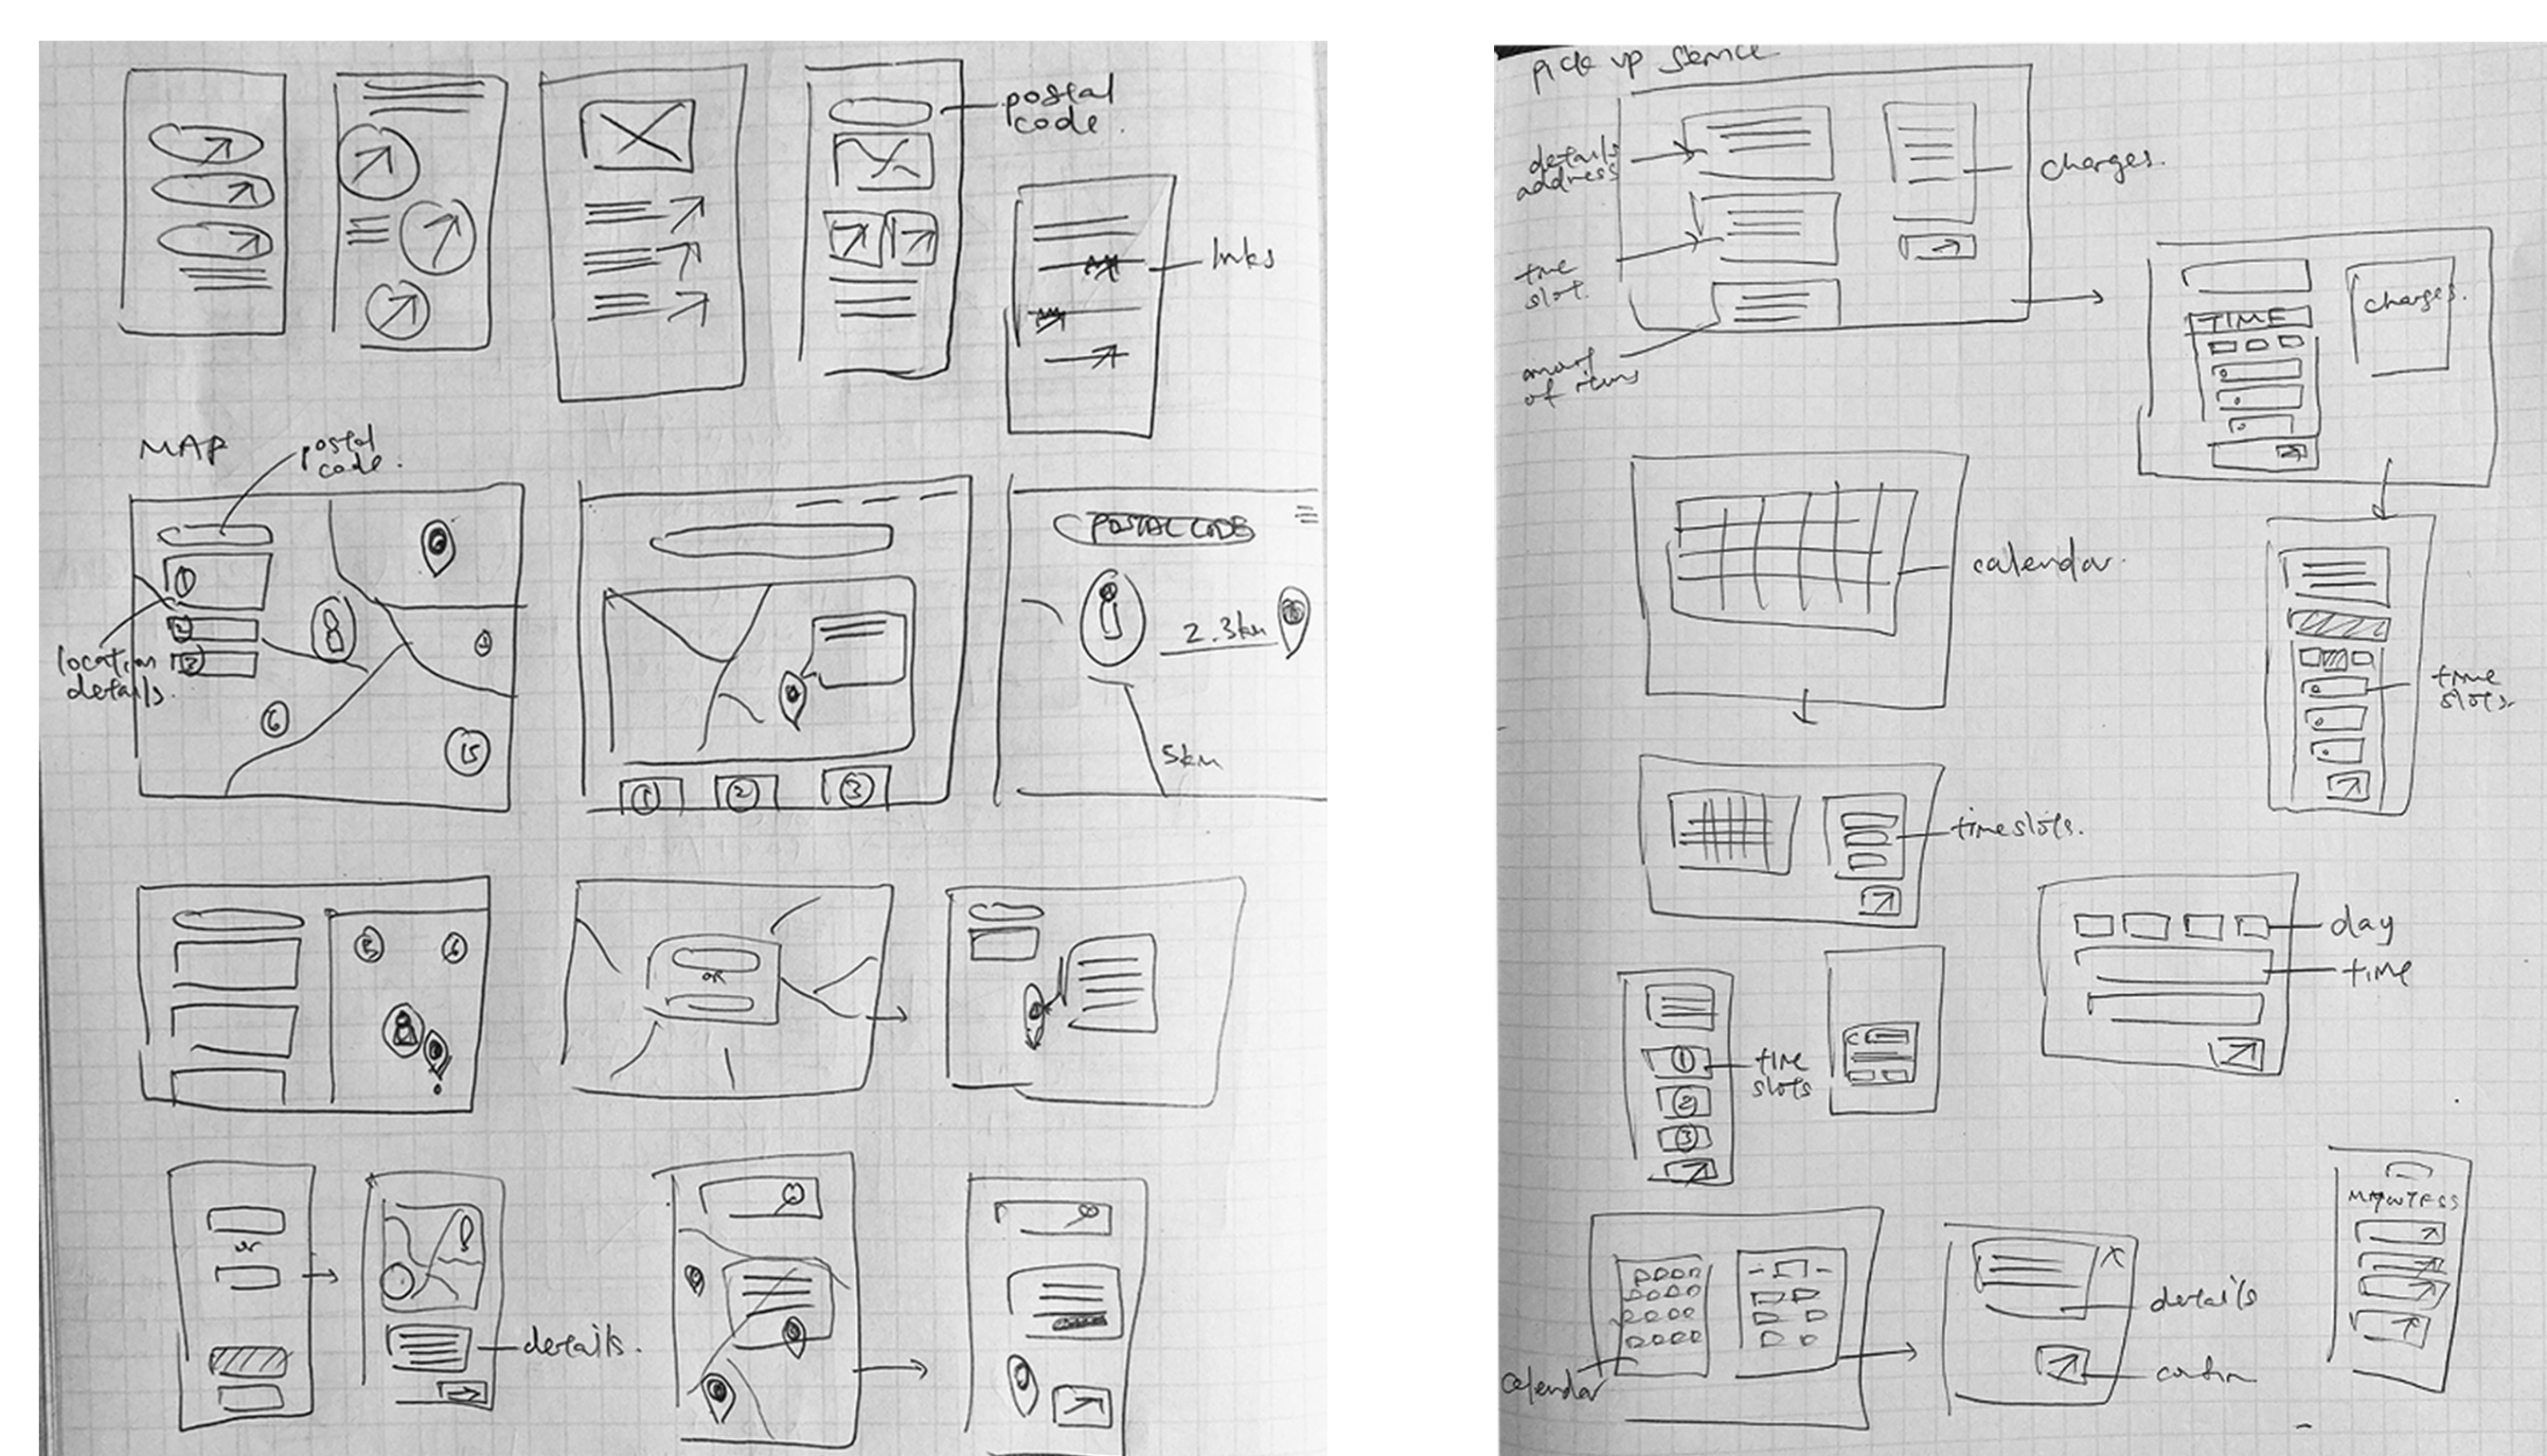 postal
code.
links
MAP
postal
code.
location
details.
1
2
3
6
15
1
2
3
POSTAL CODE
2.3km
5km
5
6
OR
or
details.
pick up service
details
address
charges.
time
slot.
amount
of items
charges.
TIME
calendar.
time
slots.
timeslots.
day
time
1
2
3
time
slots
calendar
details
confirm